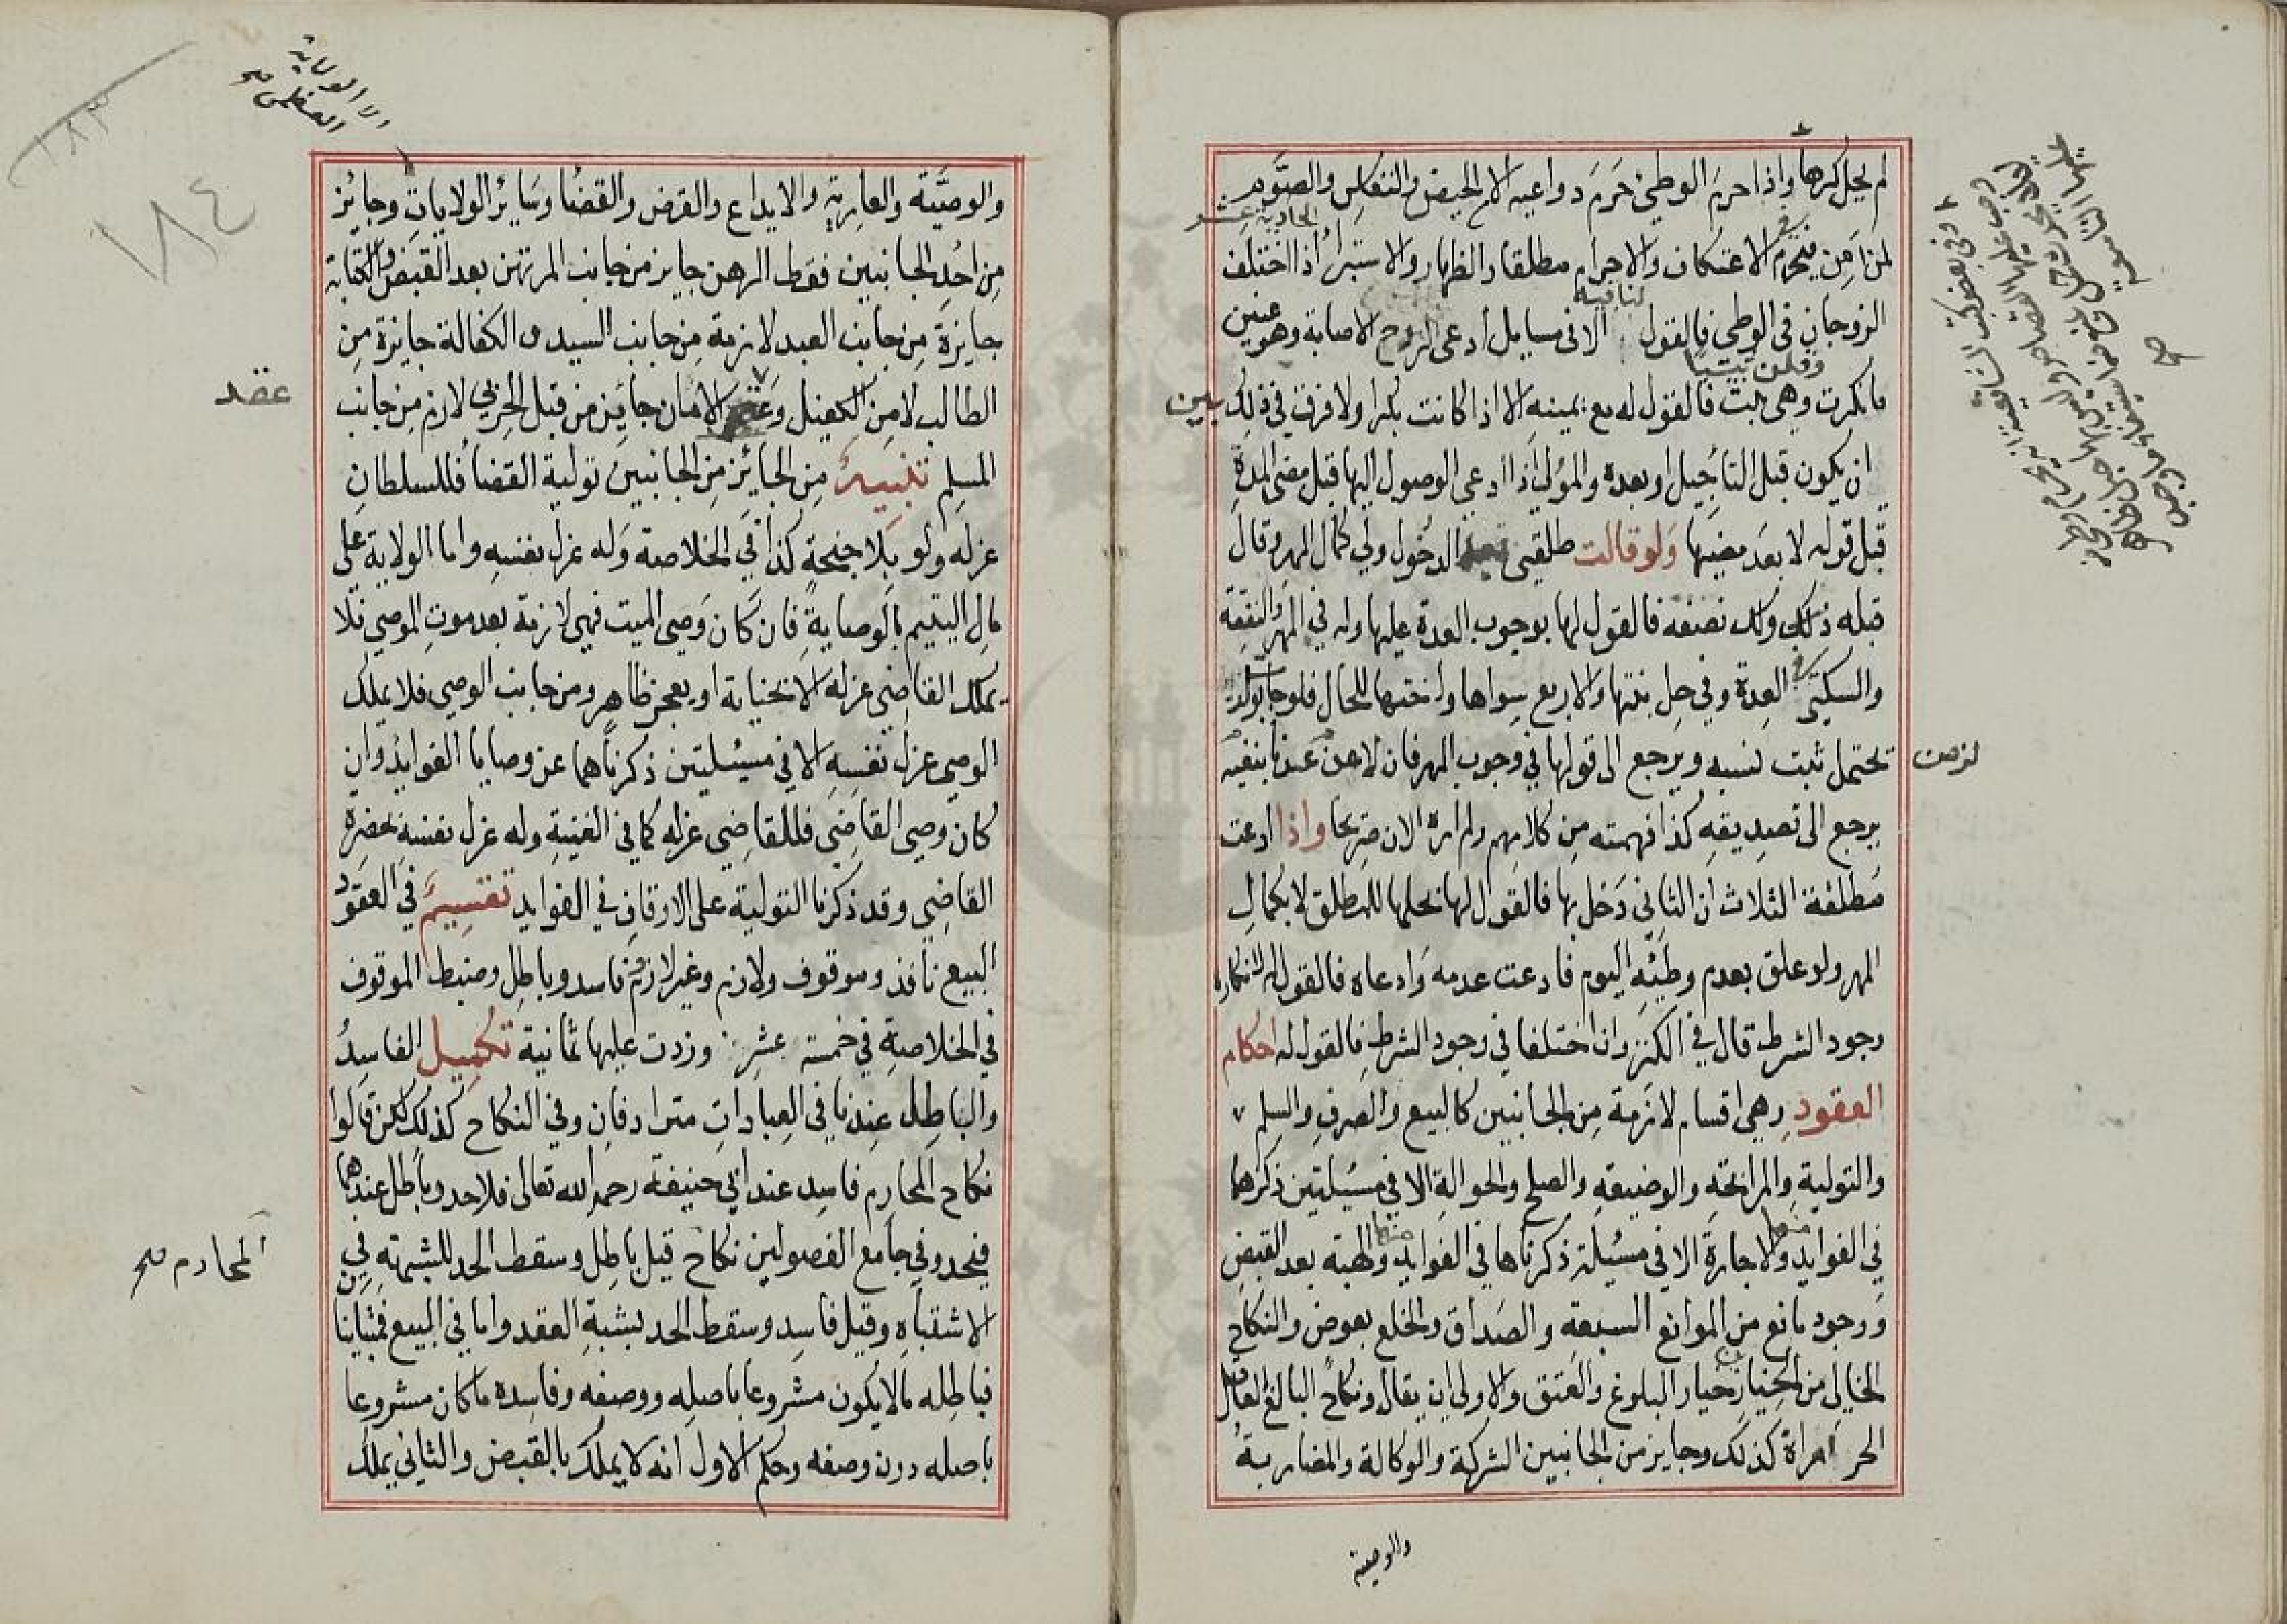 لم يحل كرها واذا حرم الوطئ حرم دواعيه الا في الحيض والنفاس والصوم
لمن امن فتحرم في الاعتكاف والاحرام مطلقا والظهار والاستبراء اذا اختلف
الحادية عشر
الزوجان في الوطئ فالقول لنافيه الا في مسايل ادعى الزوج الاصابة وهو عنين
فانكرت وقلن ثيبا وهي بنت فالقول له مع يمينه الا اذا كانت بكرا ولا فرق في ذلك بين
ان يكون قبل التأجيل او بعده والمؤلى اذا ادعى الوصول اليها قبل مضى المدة
قبل قوله لا بعد مضيها ولو قالت طلقني بعد الدخول ولي كمال المهر وقال
قبله ذلكى ولك نصفه فالقول لها بوجوب العدة عليها وله في المهر والنفقة
والسكنى في العدة وفي حل بنتها والاربع سواها واختها للحال فلو جاءت بولد
لزمن
تحتمل ثبت نسبه ويرجع الى قولها في وجوب المهر فان لاعن عندنا بنفيه
يرجع الى تصديقه كذا فهمته من كلامهم ولم اره الان صريحا واذا ادعت
مطلقة الثلاث ان الثاني دخل بها فالقول لها لحلها للمطلق لا بكمال
المهر ولو علق بعدم وطئه اليوم فادعت عدمه وادعاه فالقول له لانكاره
وجود الشرط قال في الكنز وان اختلفا في وجود الشرط فالقول له احكام
العقود وهي اقسام لازمة من الجانبين كالبيع والصرف والسلم
والتولية والمرابحة والوضيعة والصلح والحوالة الا في مسئلتين ذكرهما
في الفوايد والاجارة الا في مسئلة ذكرناها في الفوايد والهبة بعد القبض
ووجود مانع من الموانع السبعة والصداق والخلع بعوض والنكاح
الخالي من الخيارين خيار البلوغ والعتق والاولى ان يقال ونكاح البالغ العاقل
الحر امراة كذلك وجايز من الجانبين الشركة والوكالة والمضاربة
والوصية
١٨٣
١٨٤
والوصية والعارية والايداع والقرض والقضا وسائر الولايات وجايز
من احد الجانبين فقط الرهن جايز من جانب المرتهن بعد القبض والكتابة
جايزة من جانب العبد لازمة من جانب السيد والكفالة جايزة من
عقد
الطالب لا من الكفيل وعقد الامان جائز من قبل الحربي لازم من جانب
المسلم تنبيه من الجائز من الجانبين تولية القضا فللسلطان
عزله ولو بلا جنحة كذا في الخلاصة وله عزل نفسه واما الولاية على
مال اليتيم بالوصاية فان كان وصى الميت فهى لازمة بعد موت الموصي فلا
يملك القاضي عزله الا بخيانة او بعجز ظاهر ومن جانب الوصي فلا يملك
الوصي عزل نفسه الا في مسئلتين ذكرناهما عن وصايا الفوايد وان
كان وصى القاضى فللقاضي عزله كما في القنية وله عزل نفسه بحضرة
القاضي وقد ذكرنا التولية على الاوقاف في الفوايد تقسيم في العقود
البيع نافذ وموقوف ولازم وغير لازم فاسد وباطل وضبط الموقوف
في الخلاصة في خمسة عشر وزدت عليها ثمانية تكميل الفاسد
والباطل عندنا في العبادات مترادفان وفي النكاح كذلك لكن قالوا
نكاح المحارم فاسد عند ابي حنيفة رحمه الله تعالى فلا حد وباطل عندهما
المحارم صح
فيحد وفي جامع الفصولين نكاح قيل باطل وسقط الحد للشبهته في
الاشتباه وقيل فاسد وسقط الحد بشبة العقد واما في البيع فمتباينان
فباطله مالا يكون مشروعا باصله ووصفه وفاسده ما كان مشروعا
باصله دون وصفه وحكم الاول انه لا يملك بالقبض والثاني يملك